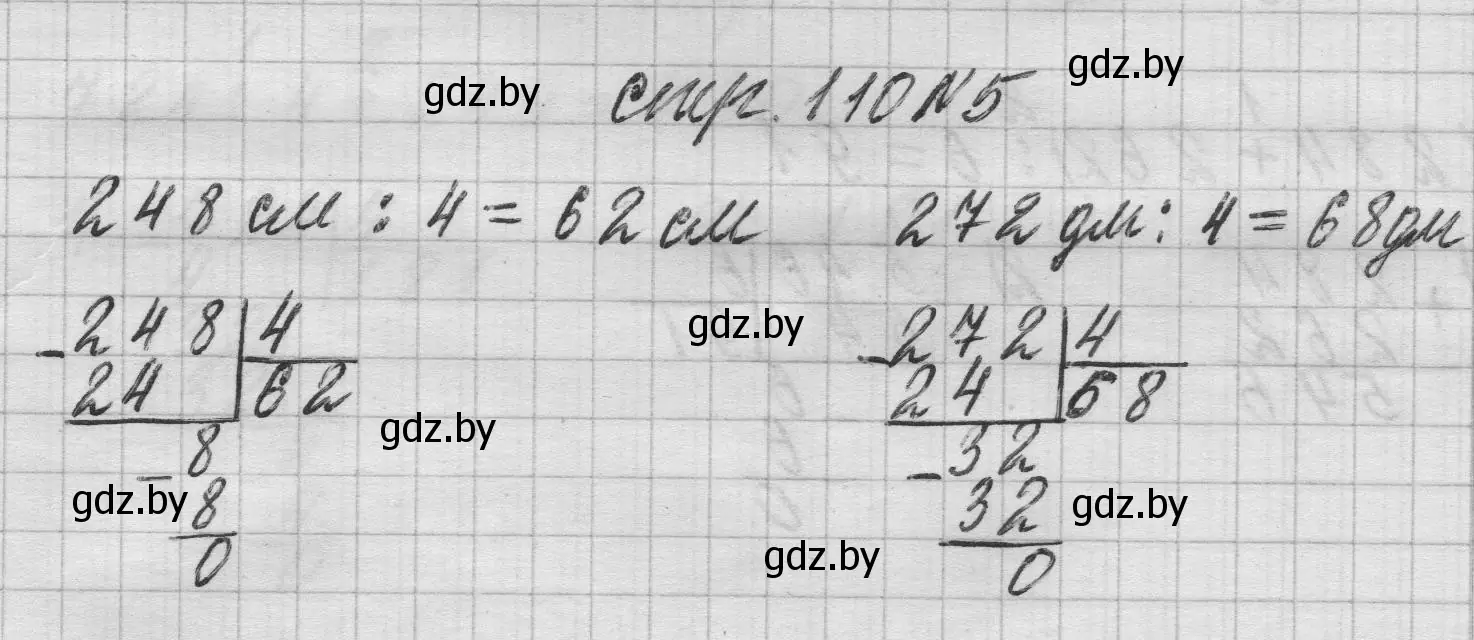 gdz.by стр. 110 N5 gdz.by
248 см : 4 = 62 см 272 дм : 4 = 68 дм
- 248 | 4 gdz.by - 272 | 4
24 62 24 68
gdz.by
- 8 - 32
gdz.by 8 32 gdz.by
gdz.by
0 0